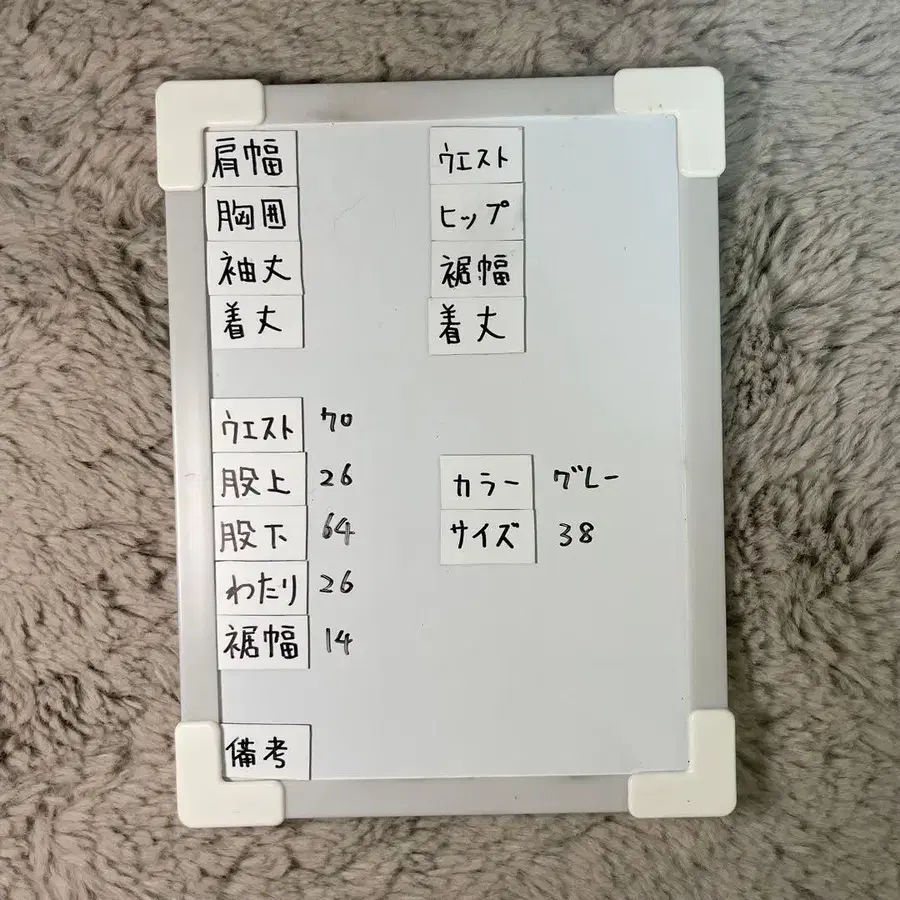 肩幅
胸囲
袖丈
着丈
ウエスト
ヒップ
裾幅
着丈
ウエスト 70
股上 26
股下 64
わたり 26
裾幅 14
カラー グレー
サイズ 38
備考